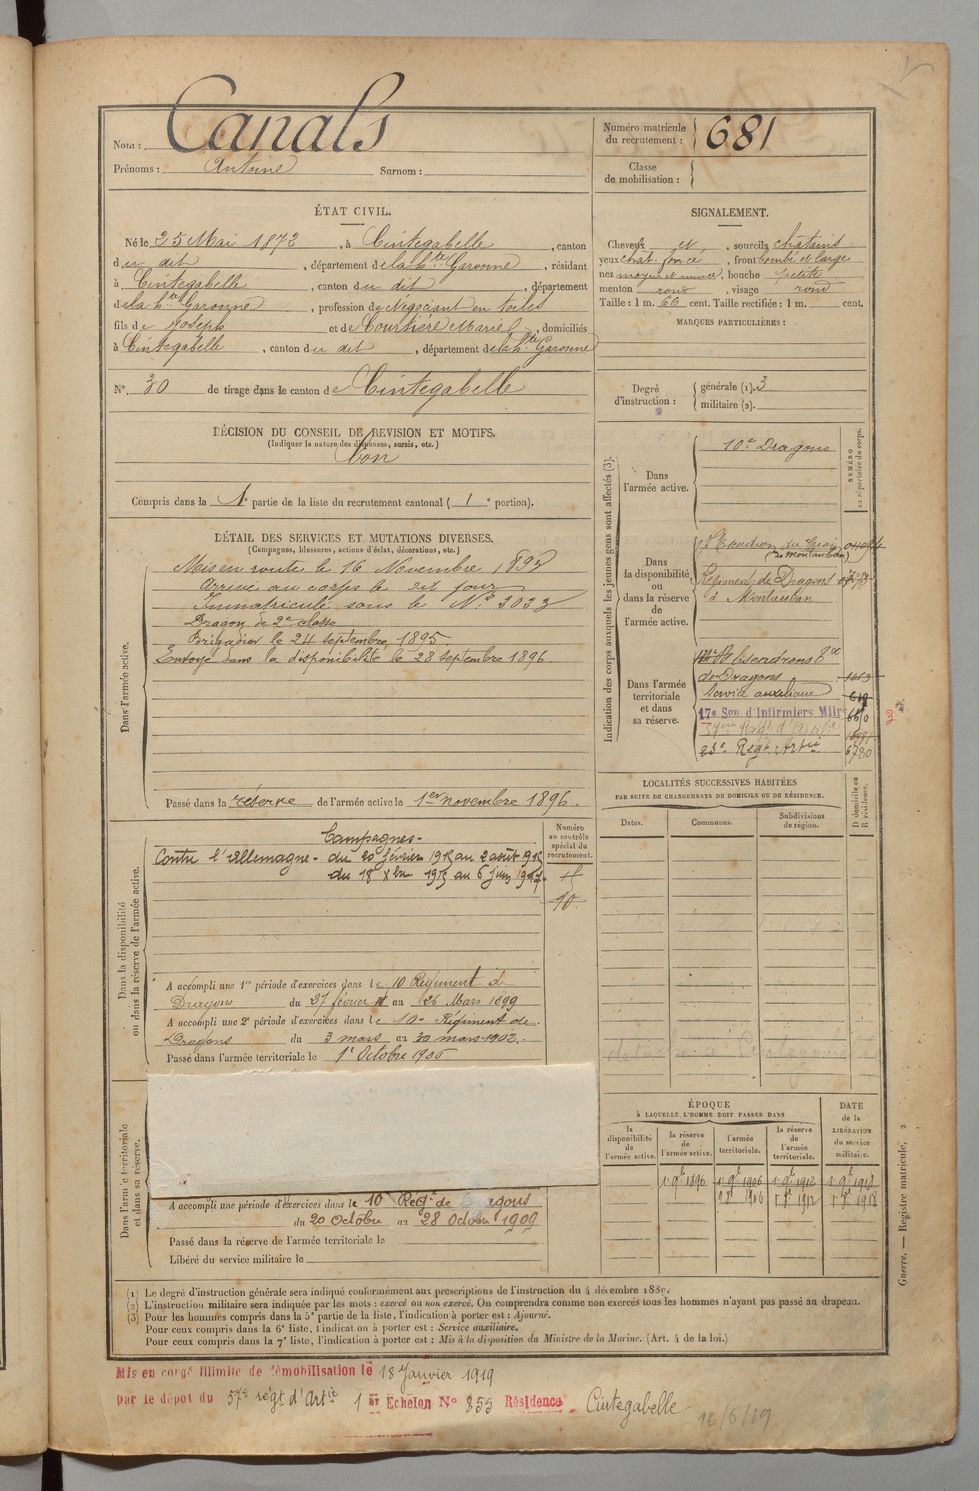 Nom : Canals
Prénoms : Antoine Surnom :
Numéro matricule du recrutement : 681
Classe de mobilisation :
ÉTAT CIVIL.
Né le 25 Mai 1872, à Cintegabelle, canton
du dit, département de la hte Garonne, résidant
à Cintegabelle, canton du dit, département
de la hte Garonne, profession de Négociant en toiles
fils de Joseph et de Courtiere Marie, domiciliés
à Cintegabelle, canton du dit, département de la hte Garonne
N° 30 de tirage dans le canton de Cintegabelle
SIGNALEMENT.
Cheveux et, sourcils châtains
yeux chat. foncé, front bombé et large
nez moyen et mince, bouche petite
menton rond, visage rond
Taille : 1 m. 66 cent. Taille rectifiée : 1 m. cent.
MARQUES PARTICULIÈRES :
Degré d'instruction :
générale (1). 3
militaire (2).
DÉCISION DU CONSEIL DE REVISION ET MOTIFS.
(Indiquer la nature des dispenses, sursis, etc.)
bon
Compris dans la 1e partie de la liste du recrutement cantonal (1e portion).
DÉTAIL DES SERVICES ET MUTATIONS DIVERSES.
(Campagnes, blessures, actions d'éclat, décorations, etc.)
Dans l'armée active.
Mis en route le 16 Novembre 1893
Arrivé au corps le dit jour
Immatriculé sous le N° 3033
Dragon de 2e classe
Brigadier le 24 septembre 1895
Envoyé dans la disponibilité le 28 septembre 1896
Passé dans la réserve de l'armée active le 1er novembre 1896.
Dans la disponibilité
ou dans la réserve de l'armée active.
Numéro au contrôle spécial du recrutement.
Campagnes.
Contre l'Allemagne - du 20 février 1915 au 2 août 1915
du 18 Xbre 1915 au 6 juin 1917.
10.
A accompli une 1re période d'exercices dans le 10 Régiment de
Dragons du 27 février au 26 Mars 1899
A accompli une 2e période d'exercices dans le 10e Régiment de
Dragons du 3 mars au 30 mars 1902.
Passé dans l'armée territoriale le 1r Octobre 1906
Dans l'armée territoriale
et dans sa réserve.
A accompli une période d'exercices dans le 10 Regt de Dragons
du 20 Octobre au 28 Octobre 1909
Passé dans la réserve de l'armée territoriale le
Libéré du service militaire le
Indication des corps auxquels les jeunes gens sont affectés (3).
NUMÉRO au répertoire du corps.
Dans l'armée active.
10e Dragons
Dans la disponibilité ou dans la réserve de l'armée active.
Escadron du Train
(de Montauban)
Régiment de Dragons
à Montauban
Dans l'armée territoriale et dans sa réserve.
Escadrons
de Dragons
Service auxiliaire
619
17e Son d'Infirmiers Milres
6610
23e Régt Artie
6780
LOCALITÉS SUCCESSIVES HABITÉES
PAR SUITE DE CHANGEMENTS DE DOMICILE OU DE RÉSIDENCE.
Dates.
Communes.
Subdivisions de région.
D domicile ou R résidence.
ÉPOQUE
À LAQUELLE L'HOMME DOIT PASSER DANS
la disponibilité de l'armée active.
la réserve de l'armée active.
l'armée territoriale.
la réserve de l'armée territoriale.
DATE de la LIBÉRATION du service militaire.
1r 9bre 1896 1r 9bre 1906 1r 9bre 1912 1r 9bre 1918
Guerre. — Registre matricule, 2
(1) Le degré d'instruction générale sera indiqué conformément aux prescriptions de l'instruction du 4 décembre 1889.
(2) L'instruction militaire sera indiquée par les mots : exercé ou non exercé. On comprendra comme non exercés tous les hommes n'ayant pas passé au drapeau.
(3) Pour les hommes compris dans la 5e partie de la liste, l'indication à porter est : Ajourné.
Pour ceux compris dans la 6e liste, l'indication à porter est : Service auxiliaire.
Pour ceux compris dans la 7e liste, l'indication à porter est : Mis à la disposition du Ministre de la Marine. (Art. 4 de la loi.)
Mis en congé illimité de démobilisation le 18 Janvier 1919
par le dépôt du 57e régt d'Artie 1er Echelon N° 855 Résidence Cintegabelle